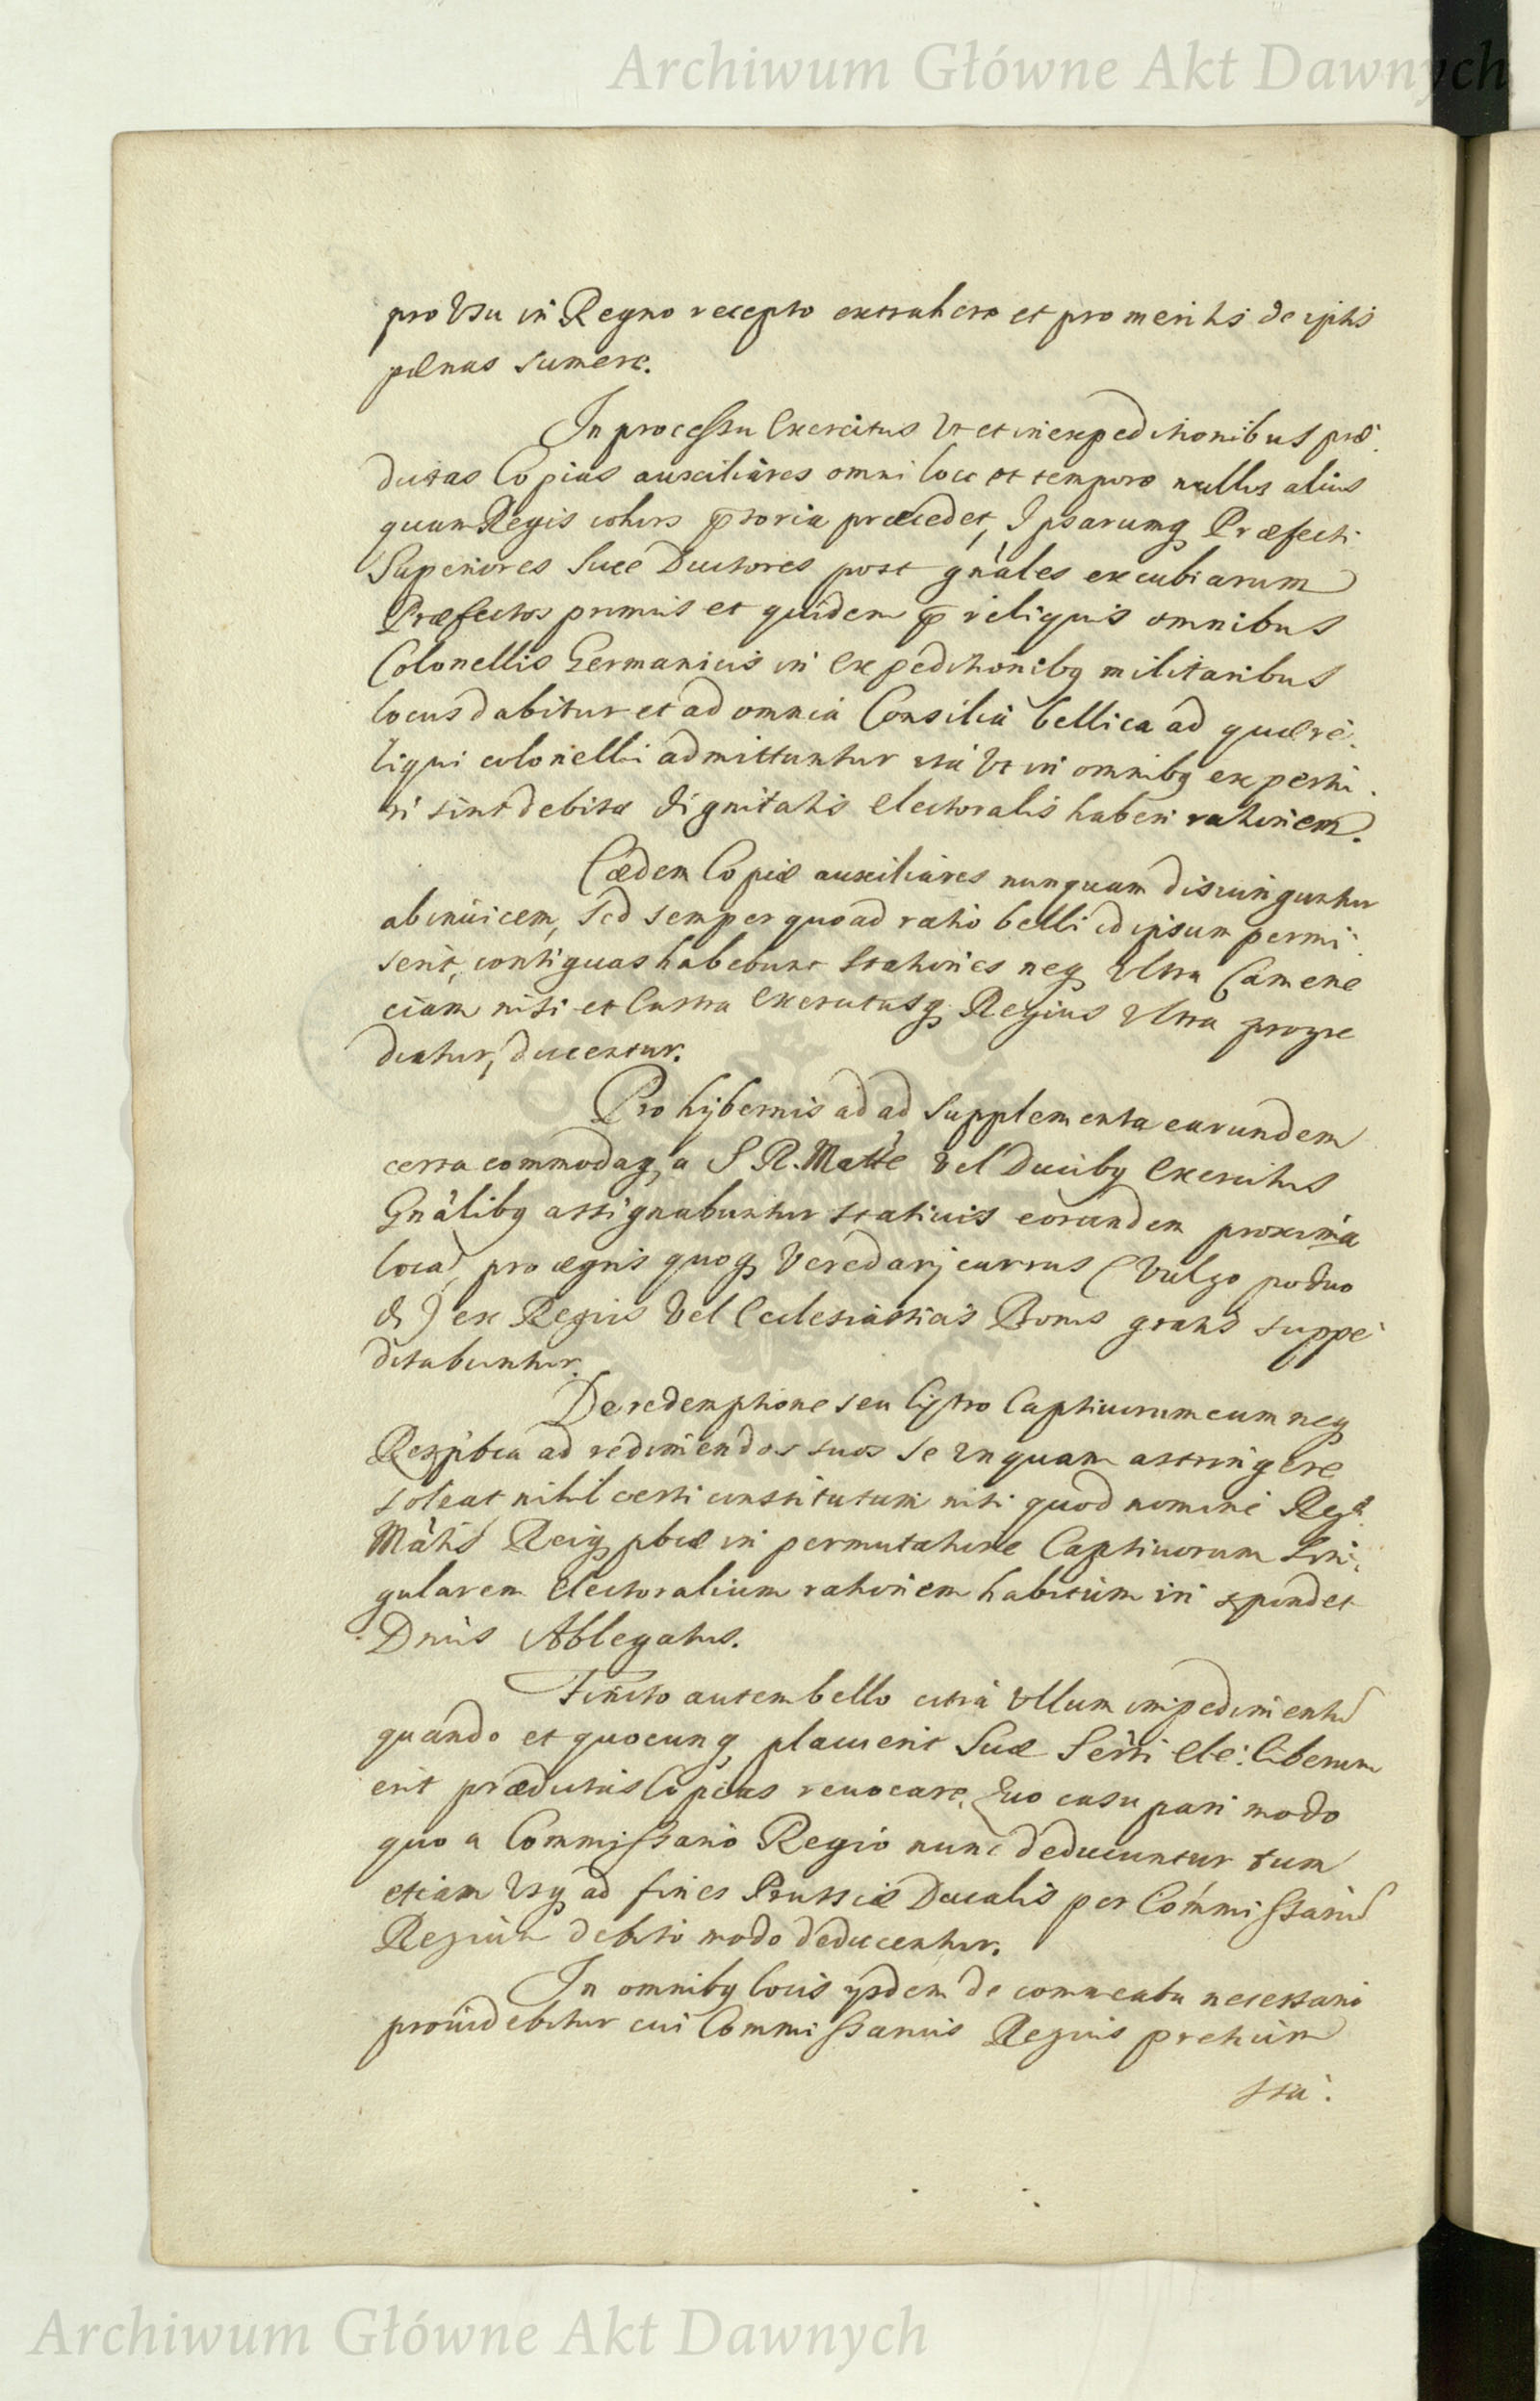 Archiwum Główne Akt Dawnych
pro Usu in Regno recepto extrahere et pro meritis de ipsis
pœnas sumere.
In processu Exercitus Vt et in expeditionibus præ
dictas Copias auxiliares omni loco et tempore nullus alius
quam Regis cohors p̄toria præcedet, Ipsarumq Præfecti
Superiores Suæ Ductores post gnàles excubiarum
Præfectos primus et quidem p̄ reliquis omnibus
Colonellis Germanicis in Expeditionibq militaribus
locus dabitur et ad omnia Consilia bellica ad quæ re
liqui colonelli admittuntur ita Vt in omnibq experti
ri sint debitæ dignitatis Electoralis haberi rationem.
Eædem Copiæ auxiliares nunquam disiunguntur
ab inuicem, sed semper quoad ratio belli id ipsum permi
serit, contiguas habebunt stationes neq Ultra Camene
ciam nisi et Castra Exercitusq Regius Ultra progre
diatur, ducentur.
Pro hÿbernis ad ad supplementa earundem
certa commodaq a S R. Matte Vel Ducibq Exercitus
Gnàlibq assignabuntur statiuis eorundem proxima
loca, pro ægris quoq Veredarÿ currus (Vulgo podwo
di) ex Regiis Vel Ecclesiasticis Bonis gratis suppe
ditabuntur.
De redemptione seu Lÿtro Captiuorum cum neq
Respblca ad redimendos suos se unquam astringere
soleat nihil certi constitutum nisi quod nomine Regæ
Màtis Reiq pbcæ in permutatione Captiuorum Sin
gularem Electoralium rationem habitum iri spondet
Dnùs Ablegatus.
Finito autem bello citra Ullum impedimentu
quando et quocunq placuerit Suæ Serti Ele: liberum
erit prædictas Copias reuocare, Quo casu pari modo
quo a Commissario Regio nunc deducuntur tum
etiam Vsq ad fines Prussiæ Ducalis per Commissariu
Regium debito modo deducentur.
In omnibq locis ÿsdem de commeatu necessario
prouidebitur cui Commissarius Regius pretium
sta:
Archiwum Główne Akt Dawnych